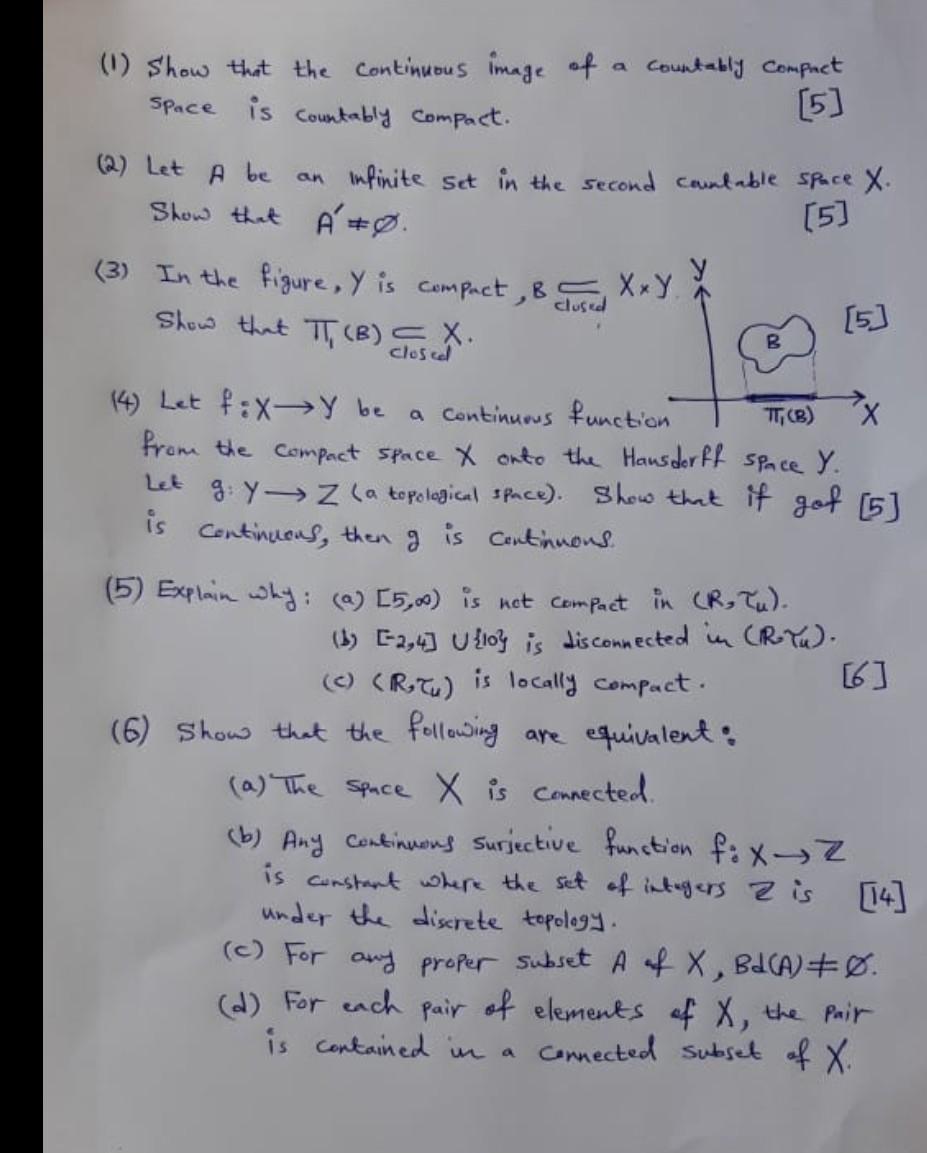 (1) Show that the continuous image of a countably compact
space is countably compact. [5]
(2) Let A be an infinite set in the second countable space X.
Show that A′ ≠ ∅. [5]
(3) In the figure, Y is compact, B ⊂ X×Y. Y
closed
Show that π₁(B) ⊂ X. [5]
closed
B
(4) Let f: X → Y be a continuous function π₁(B) X
from the compact space X onto the Hausdorff space Y.
Let g: Y → Z (a topological space). Show that if gof [5]
is continuous, then g is continuous.
(5) Explain why: (a) [5,∞) is not compact in (R, τu).
(b) [-2,4] ∪ {10} is disconnected in (R, τu).
(c) (R, τu) is locally compact. [6]
(6) Show that the following are equivalent:
(a) The space X is connected.
(b) Any continuous surjective function f: X → Z
is constant where the set of integers Z is [14]
under the discrete topology.
(c) For any proper subset A of X, Bd(A) ≠ ∅.
(d) For each pair of elements of X, the pair
is contained in a connected subset of X.